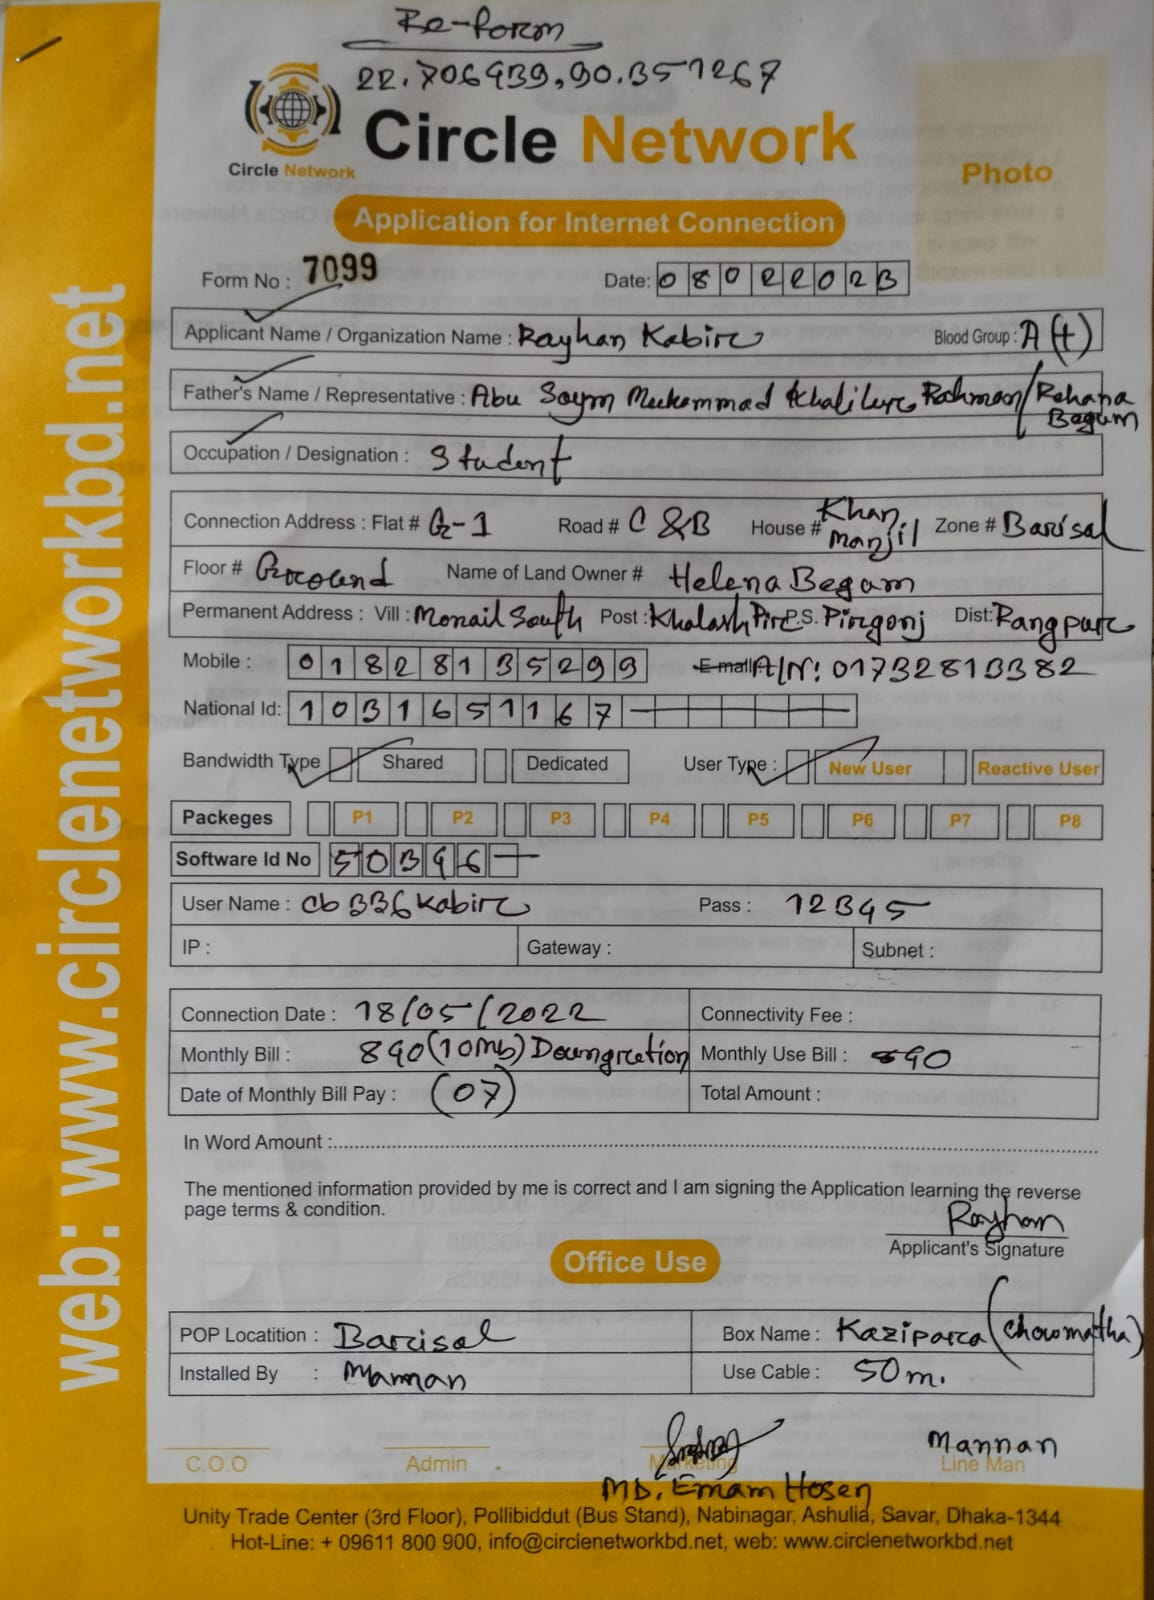 Re-form
22.706939,90.351267
Circle Network
Circle Network
Photo
Application for Internet Connection
Form No : 7099 Date: 08022023
Applicant Name / Organization Name : Rayhan Kabir Blood Group : A(+)
Father's Name / Representative : Abu Saym Muhammad Khalilur Rahman/Rehana Begum
Occupation / Designation : Student
Connection Address : Flat # G-1 Road # C &B House # Khan Manjil Zone # Barisal
Floor # Ground Name of Land Owner # Helena Begam
Permanent Address : Vill : Monail South Post : Khalash Pir P.S. Pirgonj Dist: Rangpur
Mobile : 01828135299 E-mail: A/N: 01732813382
National Id: 1031651167
Bandwidth Type Shared Dedicated User Type : New User Reactive User
Packeges P1 P2 P3 P4 P5 P6 P7 P8
Software Id No 50396
User Name : cb336kabir Pass : 12345
IP : Gateway : Subnet :
Connection Date : 18/05/2022 Connectivity Fee :
Monthly Bill : 890(10Mb) Downgration Monthly Use Bill : 890
Date of Monthly Bill Pay : (07) Total Amount :
In Word Amount :
The mentioned information provided by me is correct and I am signing the Application learning the reverse
page terms & condition.
Rayhan
Applicant's Signature
Office Use
POP Locatition : Barisal Box Name : Kazipara (Chowmatha)
Installed By : Mannan Use Cable : 50m.
Mannan
C.O.O Admin Marketing Line Man
MD. Emam Hosen
Unity Trade Center (3rd Floor), Pollibiddut (Bus Stand), Nabinagar, Ashulia, Savar, Dhaka-1344
Hot-Line: + 09611 800 900, info@circlenetworkbd.net, web: www.circlenetworkbd.net
web: www.circlenetworkbd.net